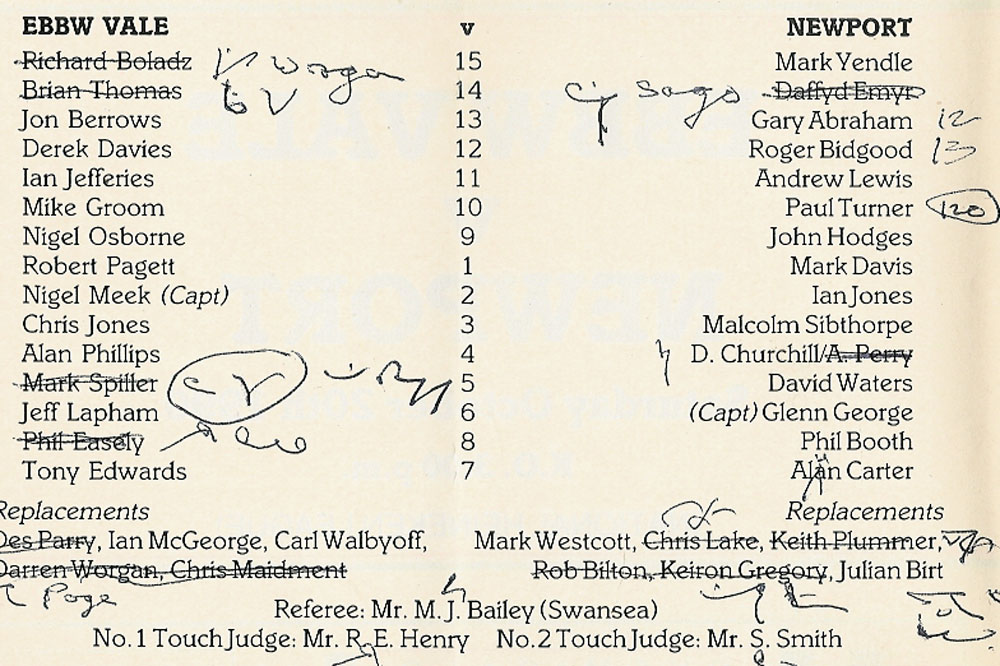 EBBW VALE v NEWPORT
Richard Boladz Worgan 15 Mark Yendle
Brian Thomas 14 Sago Daffyd Emyr
Jon Berrows 13 Gary Abraham 12
Derek Davies 12 Roger Bidgood 13
Ian Jefferies 11 Andrew Lewis
Mike Groom 10 Paul Turner
Nigel Osborne 9 John Hodges
Robert Pagett 1 Mark Davis
Nigel Meek (Capt) 2 Ian Jones
Chris Jones 3 Malcolm Sibthorpe
Alan Phillips 4 D. Churchill/A. Perry
Mark Spiller 5 David Waters
Jeff Lapham 6 (Capt) Glenn George
Phil Easely 8 Phil Booth
Tony Edwards 7 Alan Carter
Replacements Replacements
Des Parry, Ian McGeorge, Carl Walbyoff, Mark Westcott, Chris Lake, Keith Plummer,
Darren Worgan, Chris Maidment Rob Bilton, Keiron Gregory, Julian Birt
Page
Referee: Mr. M. J. Bailey (Swansea)
No. 1 Touch Judge: Mr. R. E. Henry No. 2 Touch Judge: Mr. S. Smith